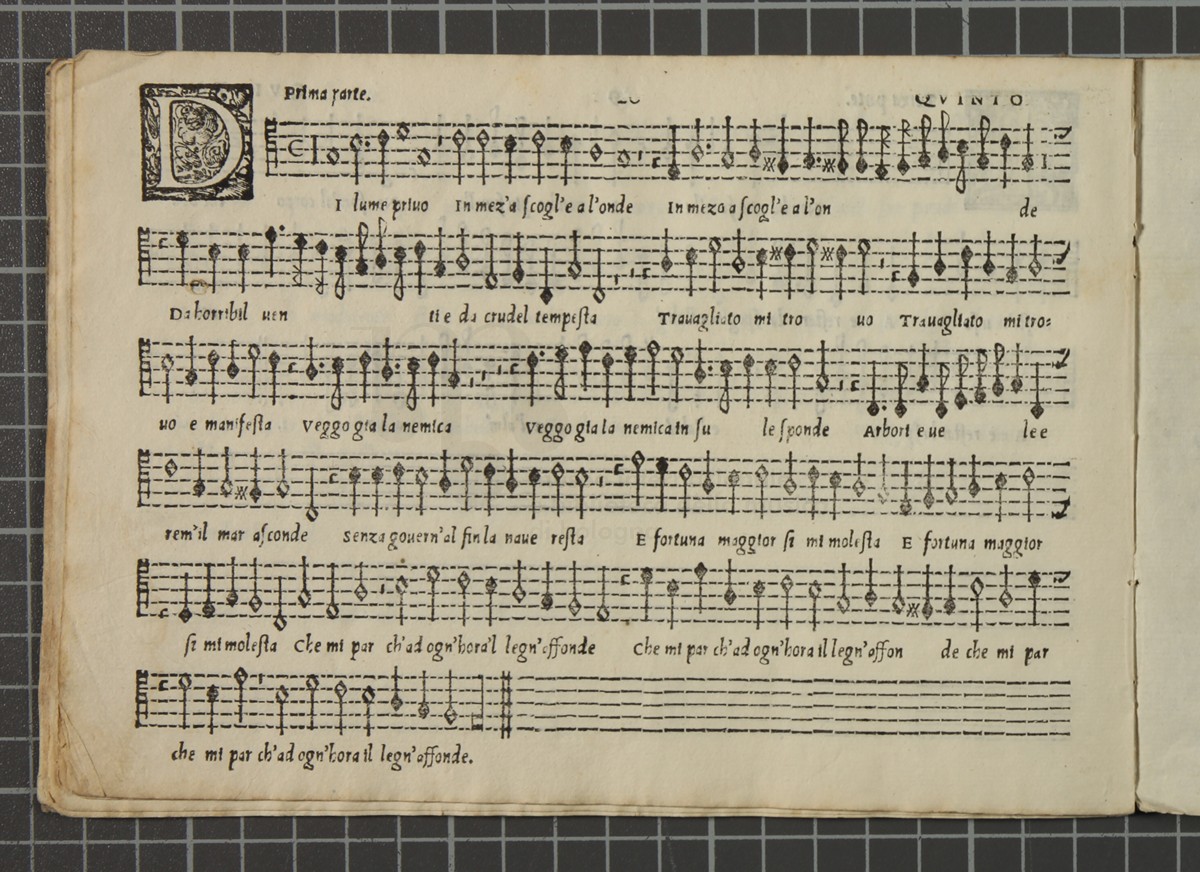 Prima parte. 20 QVINTO
DI lume priuo In mez'a scogl'e a l'onde In mezo a scogl'e a l'on de
Da horribil uen ti e da crudel tempesta Trauagliato mi tro uo Trauagliato mi tro:
uo e manifesta Veggo gia la nemica Veggo gia la nemica in su le sponde Arbori e ue le e
rem'il mar asconde Senza gouern'al fin la naue resta E fortuna maggior si mi molesta E fortuna maggior
si mi molesta Che mi par ch'ad ogn'hora'l legn'affonde Che mi par ch'ad ogn'hora il legn'affon de che mi par
che mi par ch'ad ogn'hora il legn'affonde.